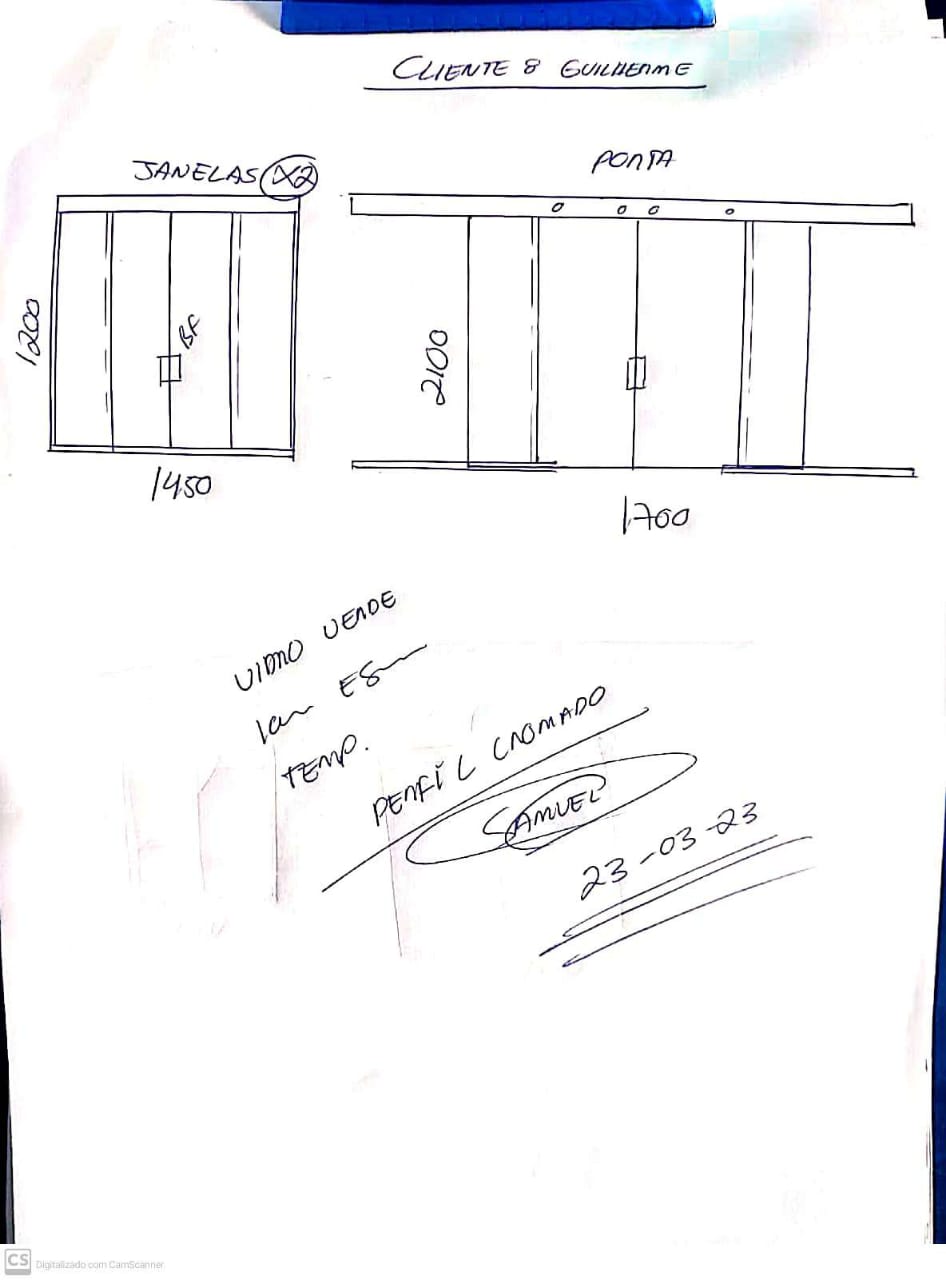 CLIENTE 8 GUILHERME
JANELAS X2
PORTA
1200
BF
2100
1450
1700
VIDRO VERDE
TEMP.
PERFIL CROMADO
SAMUEL
23-03-23
CS Digitalizado com CamScanner